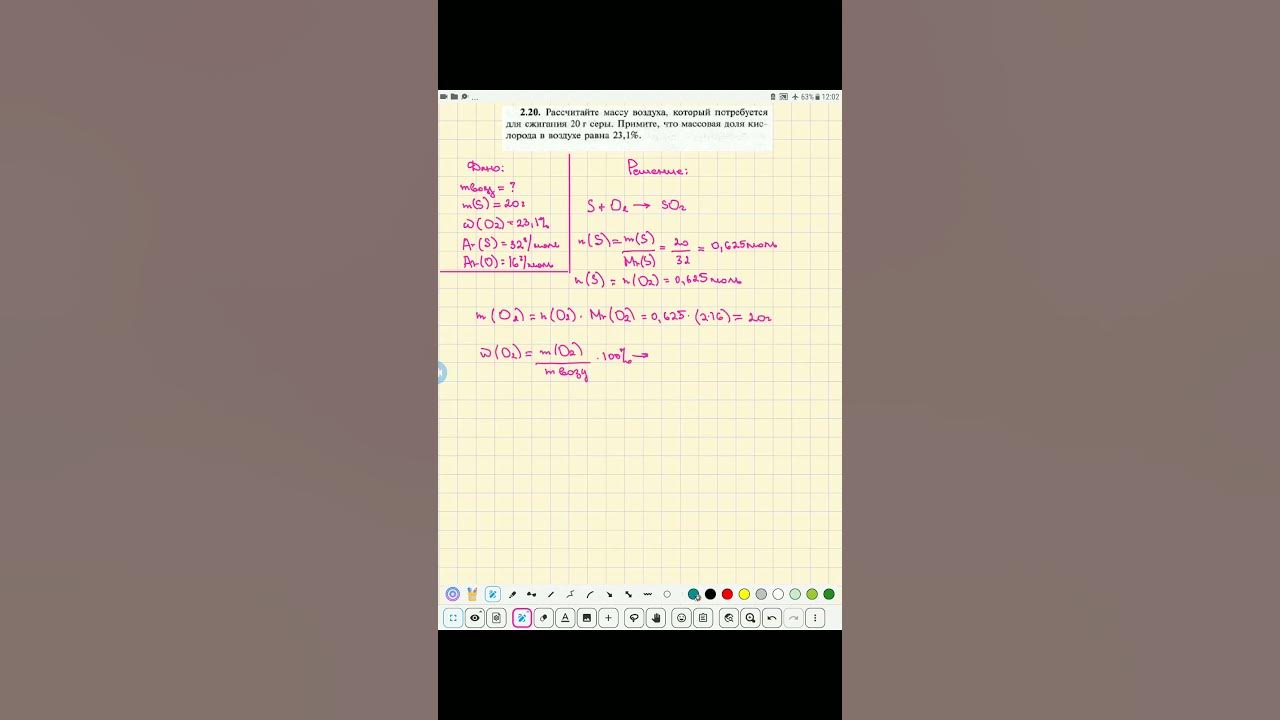 63% 12:02
2.20. Рассчитайте массу воздуха, который потребуется
для сжигания 20 г серы. Примите, что массовая доля кис-
лорода в воздухе равна 23,1%.
Дано:
m возу = ?
m(S) = 20г
ω(O2) = 23,1%
Ar(S) = 32 г/моль
Ar(O) = 16 г/моль
Решение:
S + O2 → SO2
n(S) = m(S)/Mr(S) = 20/32 = 0,625 моль
n(S) = n(O2) = 0,625 моль
m(O2) = n(O2) · Mr(O2) = 0,625 · (2·16) = 20г
ω(O2) = m(O2)/m возу · 100% →